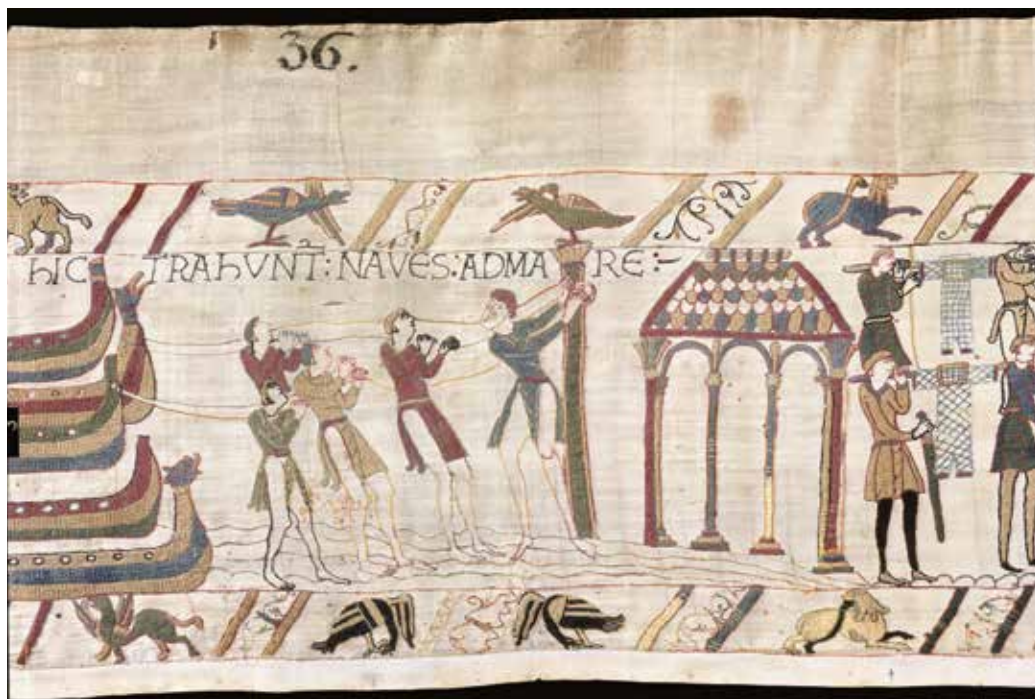 36.
hIC TRAhVNT : NAVES : ADMARE : –